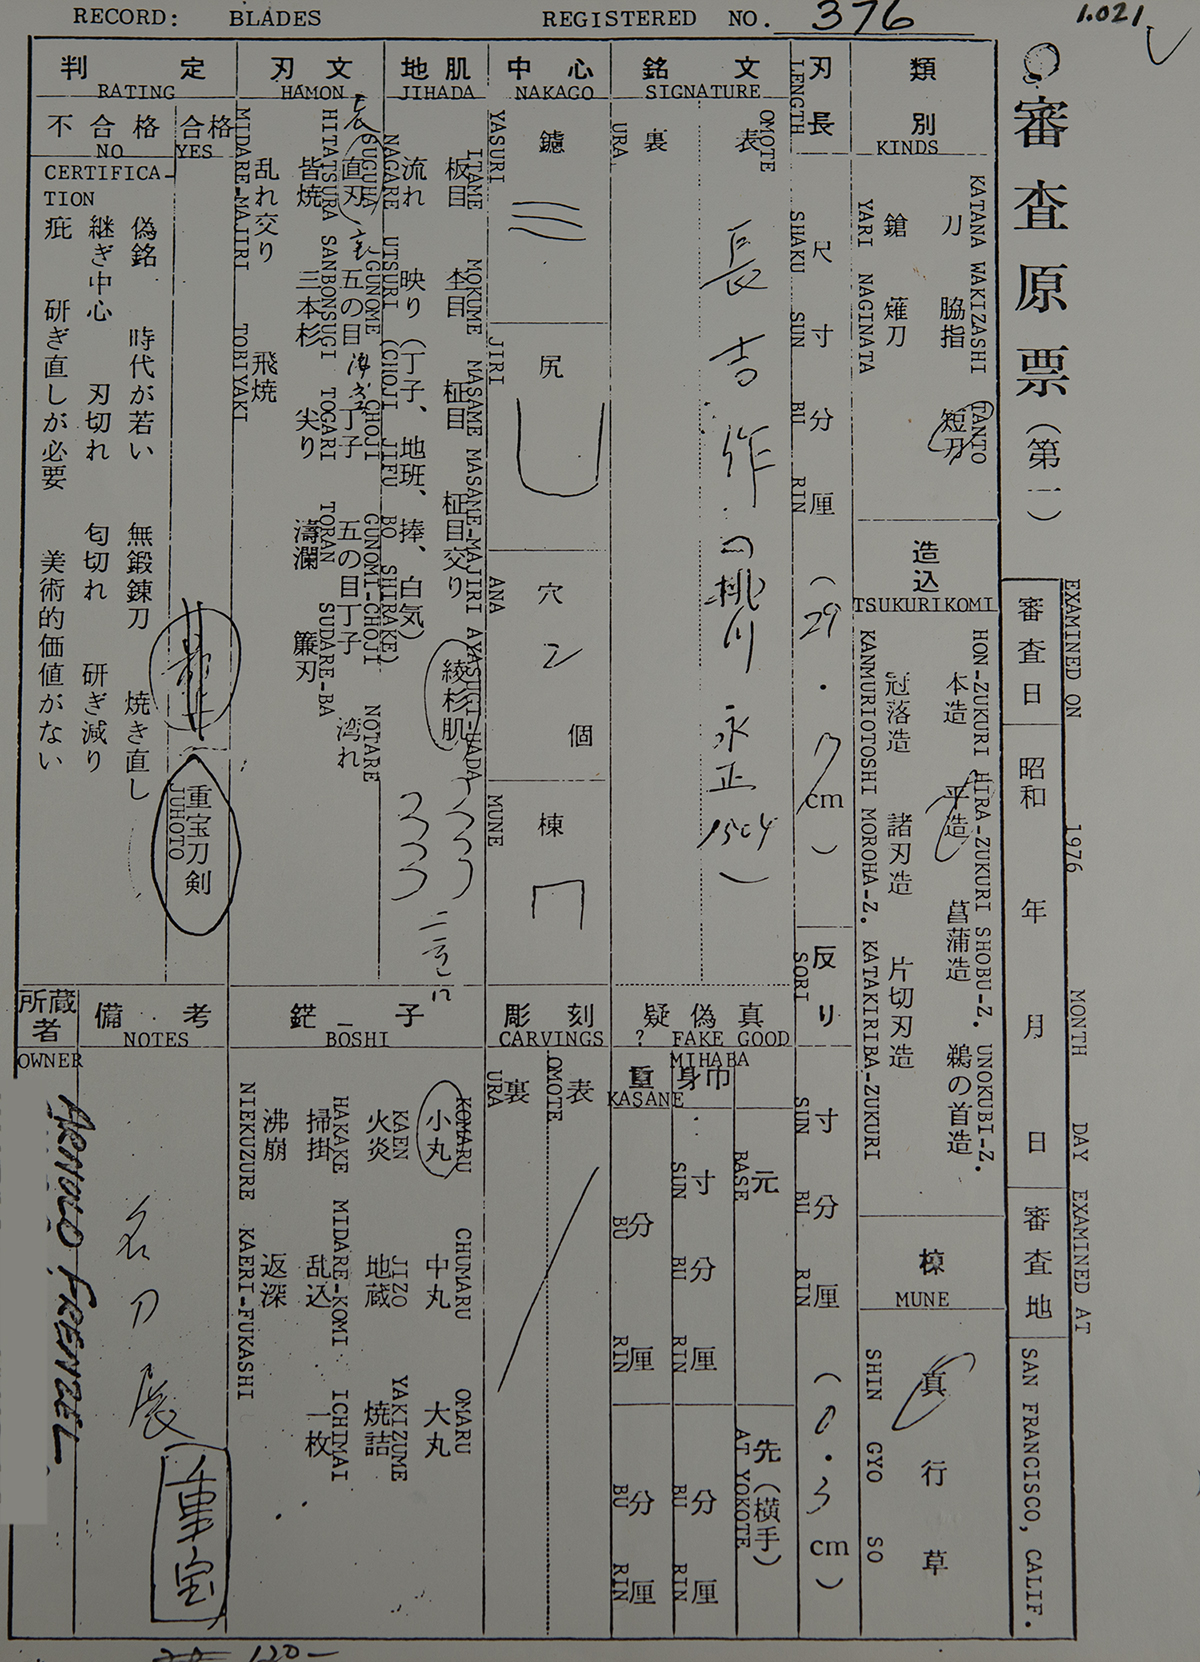 RECORD: BLADES REGISTERED NO. 376
1.021
審査原票(第一)
EXAMINED ON 1976 MONTH DAY EXAMINED AT
審査日 昭和 年 月 日 審査地
SAN FRANCISCO, CALIF.
類別
KINDS
KATANA WAKIZASHI TANTO
刀 脇指 短刀
鎗 薙刀
YARI NAGINATA
造込
TSUKURIKOMI
HON-ZUKURI HIRA-ZUKURI SHOBU-Z. UNOKUBI-Z.
本造 平造 菖蒲造 鵜の首造
冠落造 諸刃造 片切刃造
KANMURIOTOSHI MOROHA-Z. KATAKIRIBA-ZUKURI
棟
MUNE
真 行 草
SHIN GYO SO
刃長
LENGTH
尺 寸 分 厘 (29.7cm)
SHAKU SUN BU RIN
反り
SORI
寸 分 厘 (0.3cm)
SUN BU RIN
銘文
SIGNATURE
OMOTE
表
長吉作(桃川 永正 1504)
裏
URA
疑 偽 真
? FAKE GOOD
MIHABA
重 身巾
KASANE
元
BASE
先(横手)
AT YOKOTE
寸 分 厘 寸 分 厘
SUN BU RIN BU RIN
分 厘 分 厘
BU RIN BU RIN
中心
NAKAGO
鑢
YASURI
尻
JIRI
穴 2 個
ANA
棟
MUNE
彫刻
CARVINGS
表
OMOTE
裏
URA
地肌
JIHADA
ITAME MOKUME MASAME MASAME-MAJIRI AYASUGI-HADA
板目 杢目 柾目 柾目交り 綾杉肌
流れ 映り(丁子、地班、捧、白気)
NAGARE UTSURI (CHOJI JIFU BO SHIRAKE)
刃文
HAMON
SUGUHA GUNOME CHOJI GUNOMI-CHOJI NOTARE
直刃 五の目 丁子 五の目丁子 湾れ
HITATSURA SANBONSUGI TOGARI TORAN SUDARE-BA
皆焼 三本杉 尖り 濤瀾 簾刃
乱れ交り 飛焼
MIDARE-MAJIRI TOBIYAKI
鋩子
BOSHI
KOMARU CHUMARU OMARU
小丸 中丸 大丸
KAEN JIZO YAKIZUME
火炎 地蔵 焼詰
HAKAKE MIDARE-KOMI ICHIMAI
掃掛 乱込 一枚
沸崩 返深
NIEKUZURE KAERI-FUKASHI
判定
RATING
合格
YES
重宝刀剣
JUHOTO
不合格
NO
CERTIFICA-
TION
偽銘 時代が若い 無鍛錬刀 焼き直し
継ぎ中心 刃切れ 匂切れ 研ぎ減り
疵 研ぎ直しが必要 美術的価値がない
備考
NOTES
名刀展
重宝
所蔵者
OWNER
ARNOLD FRENZEL
120-